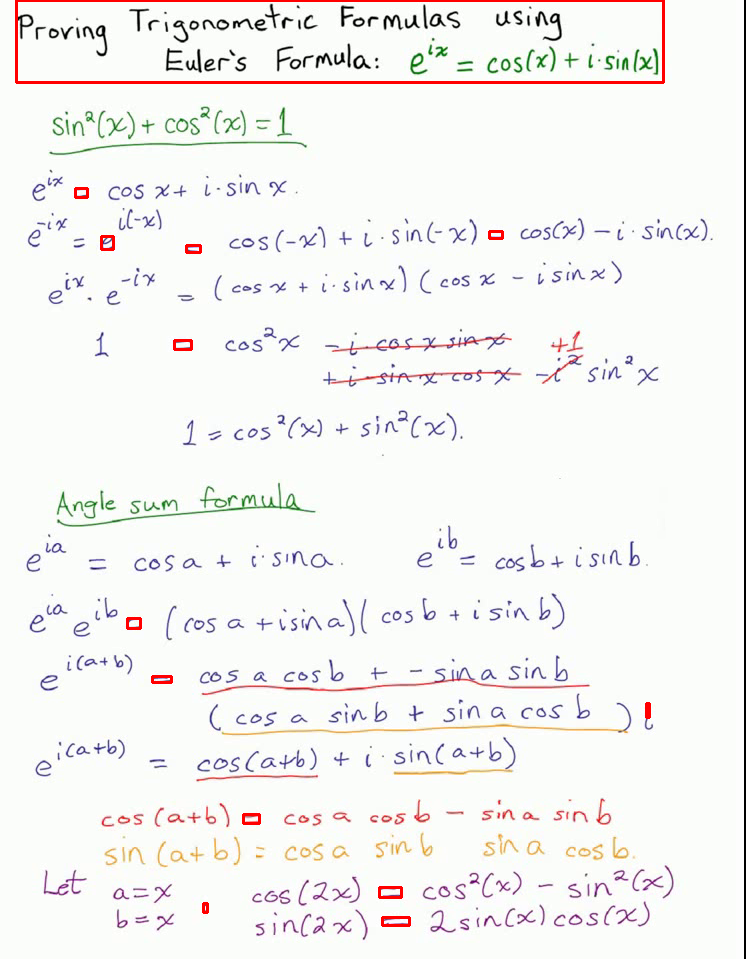 Proving Trigonometric Formulas using
Euler's Formula: e^{ix} = cos(x) + i·sin(x)
sin²(x) + cos²(x) = 1
e^{ix} = cos x + i·sin x.
e^{-ix} = e^{i(-x)} = cos(-x) + i·sin(-x) = cos(x) - i·sin(x).
e^{ix}·e^{-ix} = (cos x + i·sin x)(cos x - i sin x)
1 = cos²x - i·cos x sin x +1
+ i·sin x cos x - i² sin²x
1 = cos²(x) + sin²(x).
Angle sum formula
e^{ia} = cos a + i·sin a. e^{ib} = cos b + i sin b.
e^{ia} e^{ib} = (cos a + i sin a)(cos b + i sin b)
e^{i(a+b)} = cos a cos b + - sin a sin b
(cos a sin b + sin a cos b) i
e^{i(a+b)} = cos(a+b) + i·sin(a+b)
cos(a+b) = cos a cos b - sin a sin b
sin(a+b) = cos a sin b sin a cos b.
Let a=x cos(2x) = cos²(x) - sin²(x)
b=x sin(2x) = 2sin(x)cos(x)